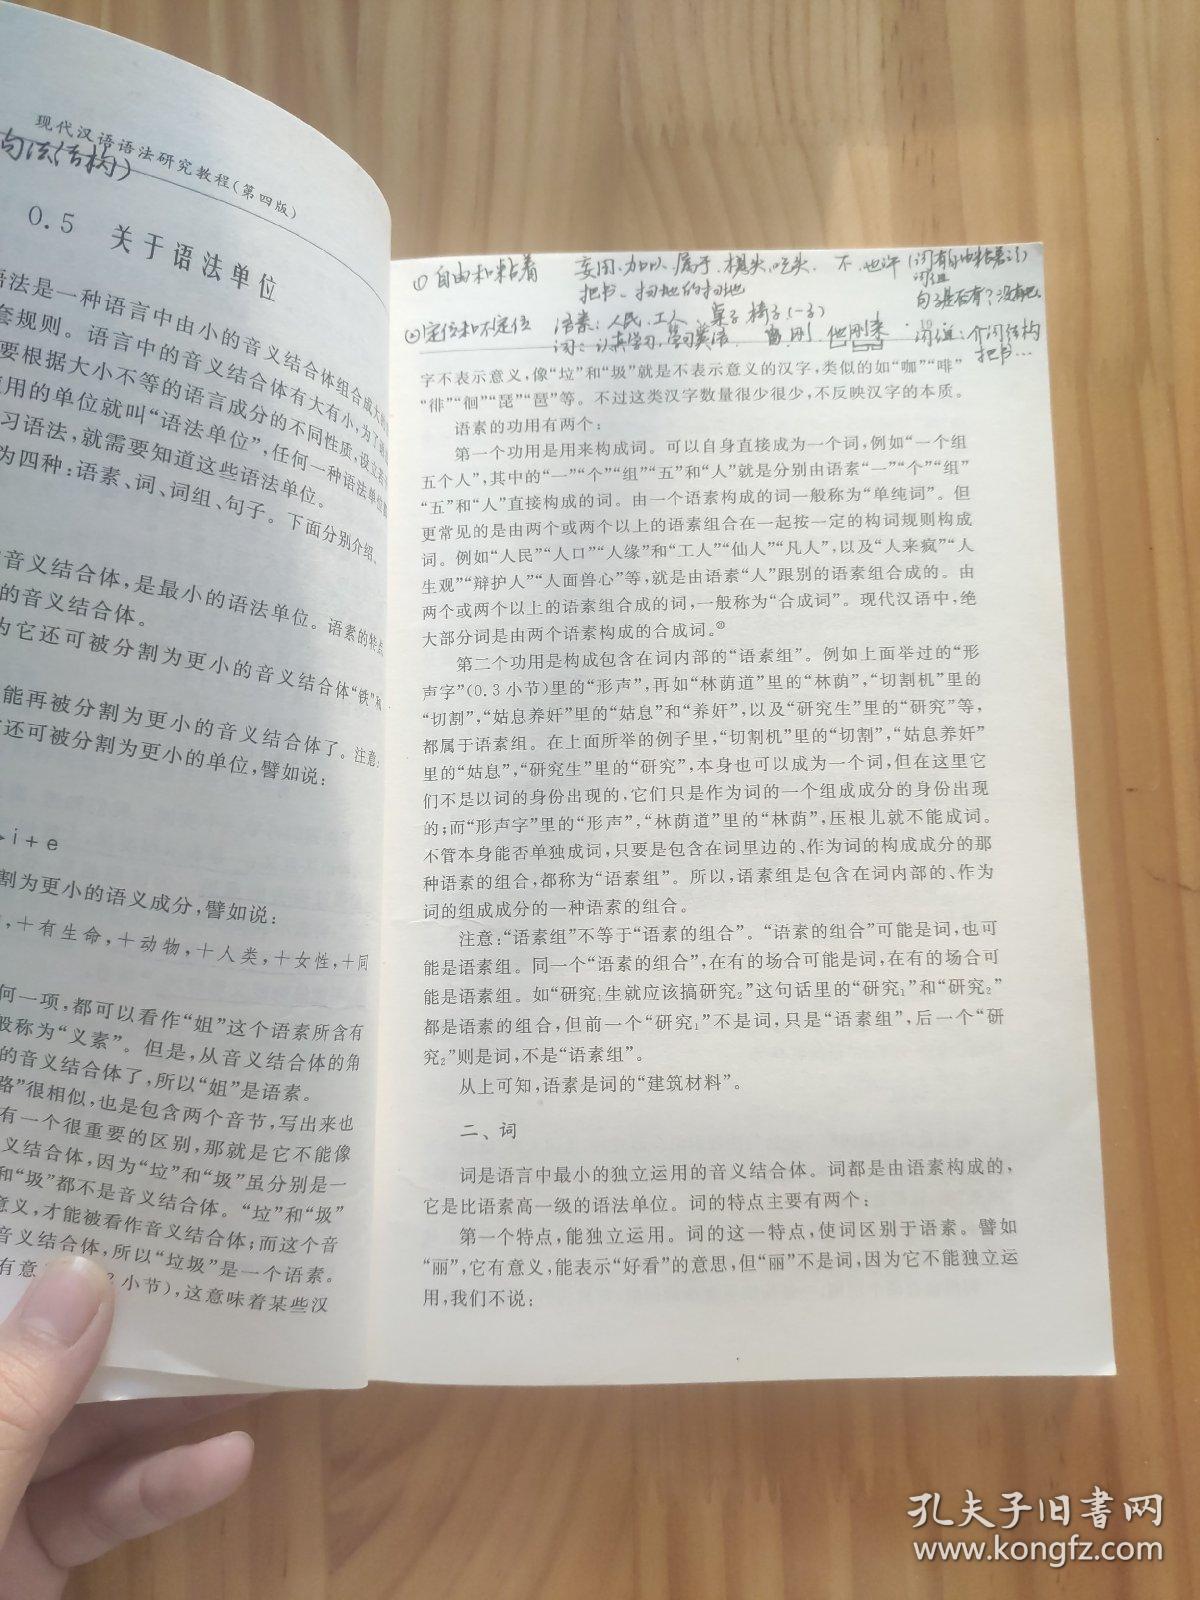 现代汉语语法研究教程(第四版)
句法(结构)
0.5 关于语法单位
语法是一种语言中由小的音义结合体组合成大的
套规则。语言中的音义结合体有大有小,为了
要根据大小不等的语言成分的不同性质,设立
使用的单位就叫“语法单位”,任何一种语法单位
习语法,就需要知道这些语法单位。
为四种:语素、词、词组、句子。下面分别介绍。
音义结合体,是最小的语法单位。语素的特点
的音义结合体。
为它还可被分割为更小的音义结合体“铁”和
能再被分割为更小的音义结合体了。注意:
还可被分割为更小的单位,譬如说:
i+e
割为更小的语义成分,譬如说:
,+有生命,+动物,+人类,+女性,+同
何一项,都可以看作“姐”这个语素所含有
般称为“义素”。但是,从音义结合体的角
的音义结合体了,所以“姐”是语素。
路”很相似,也是包含两个音节,写出来也
有一个很重要的区别,那就是它不能像
义结合体,因为“垃”和“圾”虽分别是一
和“圾”都不是音义结合体。“垃”和“圾”
意义,才能被看作音义结合体;而这个音
音义结合体,所以“垃圾”是一个语素。
有意
小节),这意味着某些汉
① 自由和粘着 妄用、加以、属于、想头、吃头、不、也许
把书、扫地的扫地
词组
句子是否有?没有也
②定位和不定位 语素:人民、工人、桌子 椅子(-子)
词:认真学习,学习英语 刚 他刚来 词组:介词结构
把书…
字不表示意义,像“垃”和“圾”就是不表示意义的汉字,类似的如“咖”“啡”
“徘”“徊”“琵”“琶”等。不过这类汉字数量很少很少,不反映汉字的本质。
语素的功用有两个:
第一个功用是用来构成词。可以自身直接成为一个词,例如“一个组
五个人”,其中的“一”“个”“组”“五”和“人”就是分别由语素“一”“个”“组”
“五”和“人”直接构成的词。由一个语素构成的词一般称为“单纯词”。但
更常见的是由两个或两个以上的语素组合在一起按一定的构词规则构成
词。例如“人民”“人口”“人缘”和“工人”“仙人”“凡人”,以及“人来疯”“人
生观”“辩护人”“人面兽心”等,就是由语素“人”跟别的语素组合成的。由
两个或两个以上的语素组合成的词,一般称为“合成词”。现代汉语中,绝
大部分词是由两个语素构成的合成词。
第二个功用是构成包含在词内部的“语素组”。例如上面举过的“形
声字”(0.3小节)里的“形声”,再如“林荫道”里的“林荫”,“切割机”里的
“切割”,“姑息养奸”里的“姑息”和“养奸”,以及“研究生”里的“研究”等,
都属于语素组。在上面所举的例子里,“切割机”里的“切割”,“姑息养奸”
里的“姑息”,“研究生”里的“研究”,本身也可以成为一个词,但在这里它
们不是以词的身份出现的,它们只是作为词的一个组成成分的身份出现
的;而“形声字”里的“形声”,“林荫道”里的“林荫”,压根儿就不能成词。
不管本身能否单独成词,只要是包含在词里边的、作为词的构成成分的那
种语素的组合,都称为“语素组”。所以,语素组是包含在词内部的、作为
词的组成成分的一种语素的组合。
注意:“语素组”不等于“语素的组合”。“语素的组合”可能是词,也可
能是语素组。同一个“语素的组合”,在有的场合可能是词,在有的场合可
能是语素组。如“研究₁生就应该搞研究₂”这句话里的“研究₁”和“研究₂”
都是语素的组合,但前一个“研究₁”不是词,只是“语素组”,后一个“研
究₂”则是词,不是“语素组”。
从上可知,语素是词的“建筑材料”。
二、词
词是语言中最小的独立运用的音义结合体。词都是由语素构成的,
它是比语素高一级的语法单位。词的特点主要有两个:
第一个特点,能独立运用。词的这一特点,使词区别于语素。譬如
“丽”,它有意义,能表示“好看”的意思,但“丽”不是词,因为它不能独立运
用,我们不说:
孔夫子旧书网
www.kongfz.com